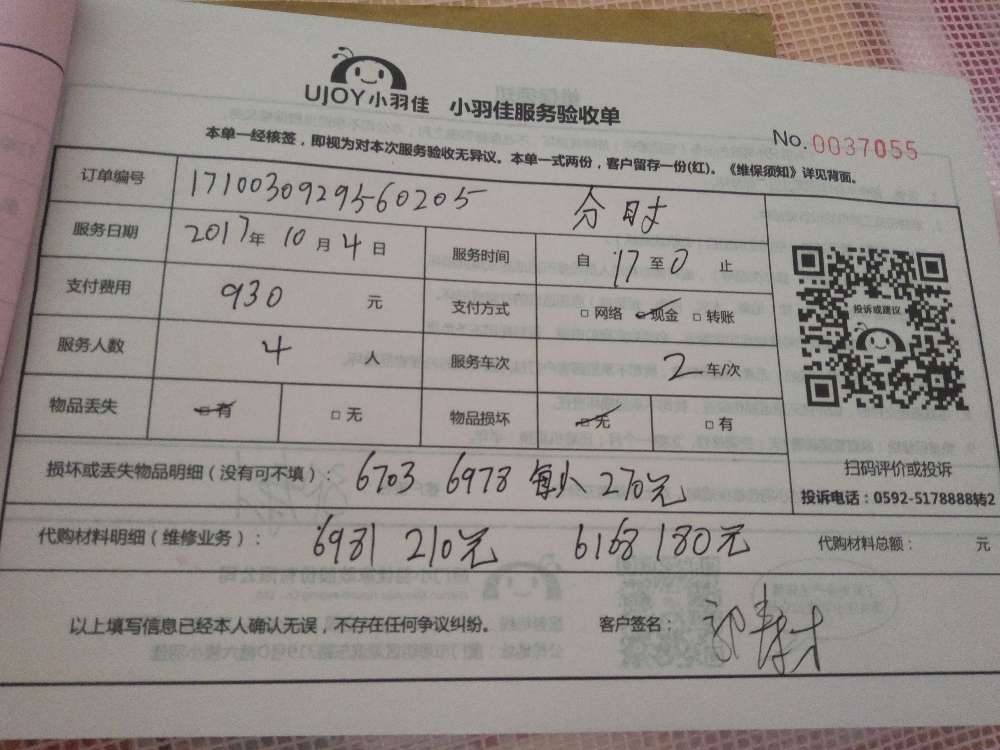 UJOY小羽佳 小羽佳服务验收单
No.0037055
本单一经核签，即视为对本次服务验收无异议。本单一式两份，客户留存一份(红)。《维保须知》详见背面。
订单编号 1710030929560205 分时
服务日期 2017年10月4日 服务时间 自17至0止
支付费用 930 元 支付方式 □网络 □现金 □转账
服务人数 4 人 服务车次 2 车/次
物品丢失 □有 □无 物品损坏 □无 □有
投诉或建议
扫码评价或投诉
投诉电话：0592-5178888转2
损坏或丢失物品明细（没有可不填）： 6703 6978 270元
代购材料明细（维修业务）： 6981 210元 6168 180元 代购材料总额： 元
以上填写信息已经本人确认无误，不存在任何争议纠纷。 客户签名：